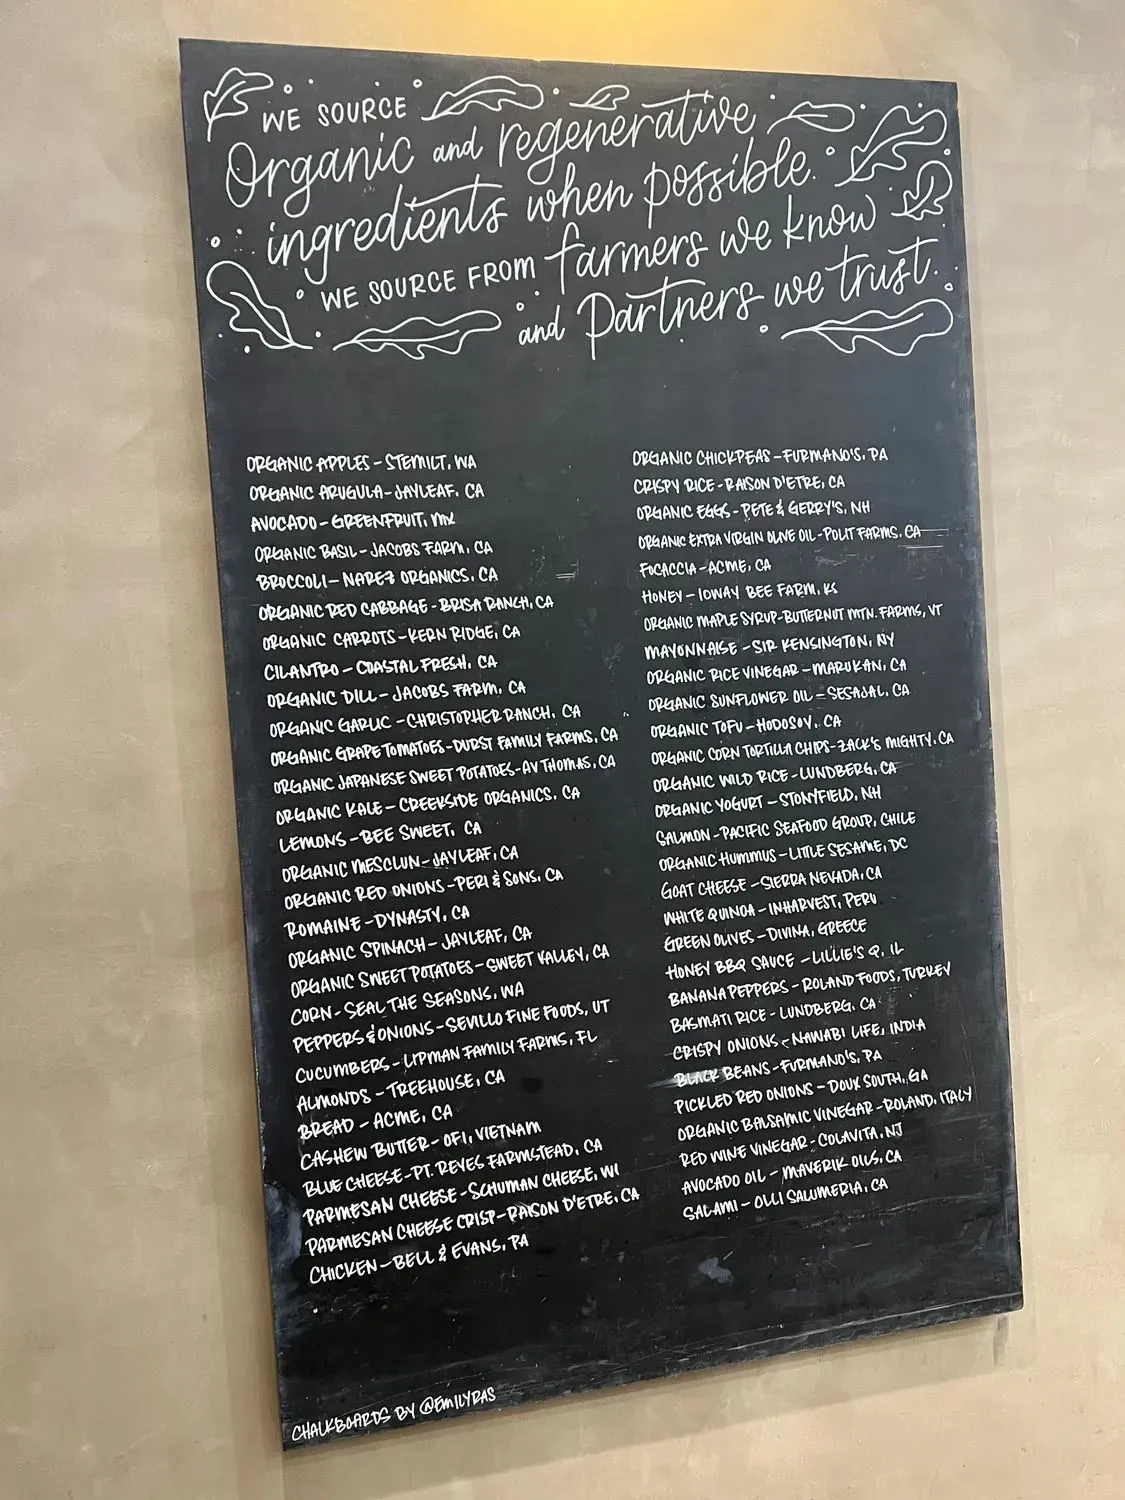 WE SOURCE
Organic and regenerative
ingredients when possible.
WE SOURCE FROM farmers we know
and partners we trust.
ORGANIC APPLES - STEMILT, WA
ORGANIC ARUGULA - JAYLEAF, CA
AVOCADO - GREENFRUIT, MX
ORGANIC BASIL - JACOBS FARM, CA
BROCCOLI - NAREZ ORGANICS, CA
ORGANIC RED CABBAGE - BRISA RANCH, CA
ORGANIC CARROTS - KERN RIDGE, CA
CILANTRO - COASTAL FRESH, CA
ORGANIC DILL - JACOBS FARM, CA
ORGANIC GARLIC - CHRISTOPHER RANCH, CA
ORGANIC GRAPE TOMATOES - DURST FAMILY FARMS, CA
ORGANIC JAPANESE SWEET POTATOES - AV THOMAS, CA
ORGANIC KALE - CREEKSIDE ORGANICS, CA
LEMONS - BEE SWEET, CA
ORGANIC MESCLUN - JAYLEAF, CA
ORGANIC RED ONIONS - PERI & SONS, CA
ROMAINE - DYNASTY, CA
ORGANIC SPINACH - JAYLEAF, CA
ORGANIC SWEET POTATOES - SWEET VALLEY, CA
CORN - SEAL THE SEASONS, WA
PEPPERS & ONIONS - SEVILLO FINE FOODS, UT
CUCUMBERS - LIPMAN FAMILY FARMS, FL
ALMONDS - TREEHOUSE, CA
BREAD - ACME, CA
CASHEW BUTTER - OFI, VIETNAM
BLUE CHEESE - PT. REYES FARMSTEAD, CA
PARMESAN CHEESE - SCHUMAN CHEESE, WI
PARMESAN CHEESE CRISP - RAISON D'ETRE, CA
CHICKEN - BELL & EVANS, PA
ORGANIC CHICKPEAS - FURMANO'S, PA
CRISPY RICE - RAISON D'ETRE, CA
ORGANIC EGGS - PETE & GERRY'S, NH
ORGANIC EXTRA VIRGIN OLIVE OIL - POLIT FARMS, CA
FOCACCIA - ACME, CA
HONEY - IOWAY BEE FARM, KS
ORGANIC MAPLE SYRUP - BUTTERNUT MTN. FARMS, VT
MAYONNAISE - SIR KENSINGTON, NY
ORGANIC RICE VINEGAR - MARUKAN, CA
ORGANIC SUNFLOWER OIL - SESAJAL, CA
ORGANIC TOFU - HODOSOY, CA
ORGANIC CORN TORTILLA CHIPS - ZACK'S MIGHTY, CA
ORGANIC WILD RICE - LUNDBERG, CA
ORGANIC YOGURT - STONYFIELD, NH
SALMON - PACIFIC SEAFOOD GROUP, CHILE
ORGANIC HUMMUS - LITTLE SESAME, DC
GOAT CHEESE - SIERRA NEVADA, CA
WHITE QUINOA - INHARVEST, PERU
GREEN OLIVES - DIVINA, GREECE
HONEY BBQ SAUCE - LILLIE'S Q, IL
BANANA PEPPERS - ROLAND FOODS, TURKEY
BASMATI RICE - LUNDBERG, CA
CRISPY ONIONS - NAWABI LIFE, INDIA
BLACK BEANS - FURMANO'S, PA
PICKLED RED ONIONS - DOUX SOUTH, GA
ORGANIC BALSAMIC VINEGAR - ROLAND, ITALY
RED WINE VINEGAR - COLAVITA, NJ
AVOCADO OIL - MAVERIK OILS, CA
SALAMI - OLLI SALUMERIA, CA
CHALKBOARDS BY @EMILYDAS